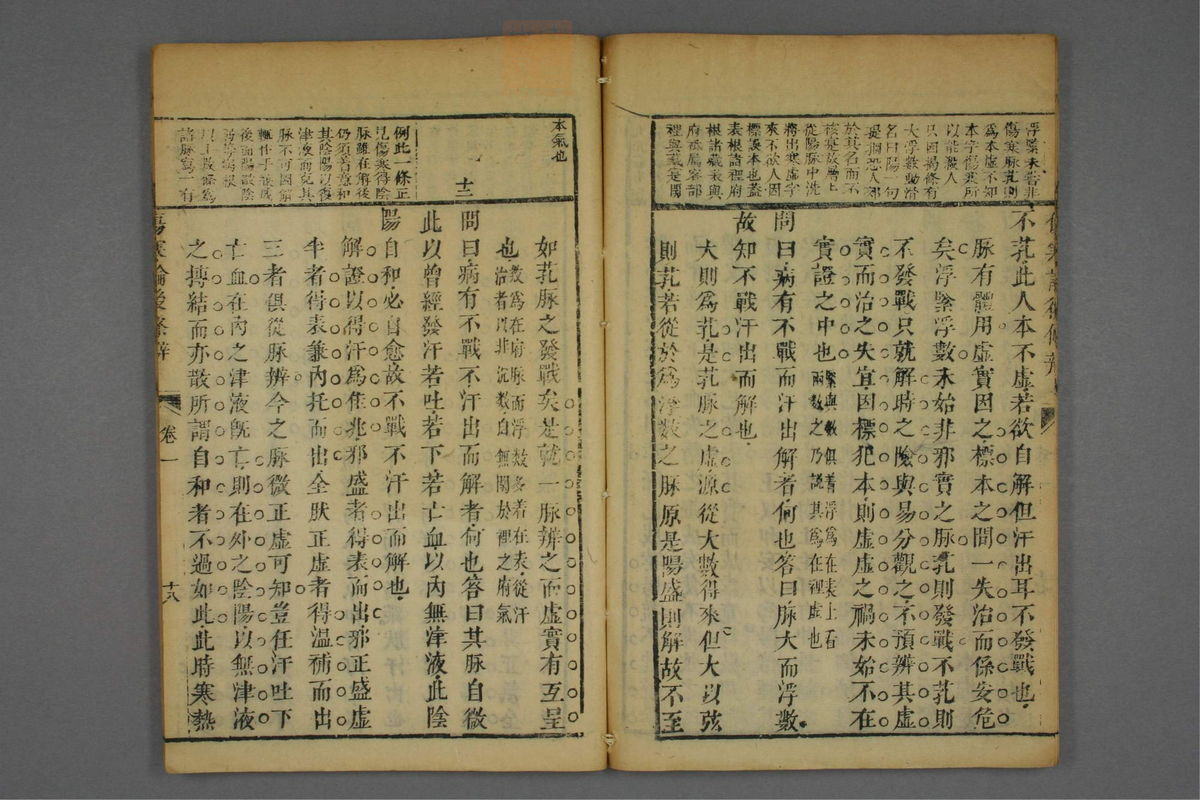 不芤此人本不虛若欲自解但汗出耳不發戰也
脉有體用虛實因之標本之間一失治而係安危
矣浮緊浮數未始非邪實之脉芤則發戰不芤則
不發戰只就解時之險與易分觀之不預辨其虛
實而治之失宜因標犯本則虛虛之禍未始不在
實證之中也緊與數俱著浮為在表上右兩數之乃認其為在裡虛也
問曰病有不戰而汗出解者何也答曰脉大而浮數
故知不戰汗出而解也
大則為芤是芤脉之虛源從大數得來但大以弦
則芤若從於為浮數之脉原是陽盛則解故不至
浮緊未者非
傷寒脉芤則
為本虛不知
本字傷寒所
以能戰人
只因揭條有
大浮數動滑
名曰陽一句
於其名而不
從陽脉中洗
將出寒虛字
來不欲人因
標誤本也蓋
表根諸裡府
根諸臟表與
府祗屬客部
裡與臟是關
本氣也
十二
如芤脉之發戰矣是就一脉辨之而虛實有互呈
也数為在府脉而浮数多着在表從汗治者以非沉数自無關於裡之府氣
問曰病有不戰不汗出而解者何也答曰其脉自微
此以曾經發汗若吐若下若亡血以內無津液此陰
陽自和必自愈故不戰不汗出而解也
解證以得汗為佳兆邪盛者得表而出邪正盛虛
半者得表兼內托而出全肰正虛者得溫補而出
三者俱從脉辨今之脉微正虛可知豈任汗吐下
亡血在內之津液既亡則在外之陰陽以無津液
之摶結而亦散所謂自和者不過如此此時寒熱
例此一條正
見傷寒得陰
脉雖在解後
仍須着意和
其陰陽以復
津液而况其
脉不可因解
後而陽歇陰
諸脉寫一有
傷寒論後條辨
卷一
十八